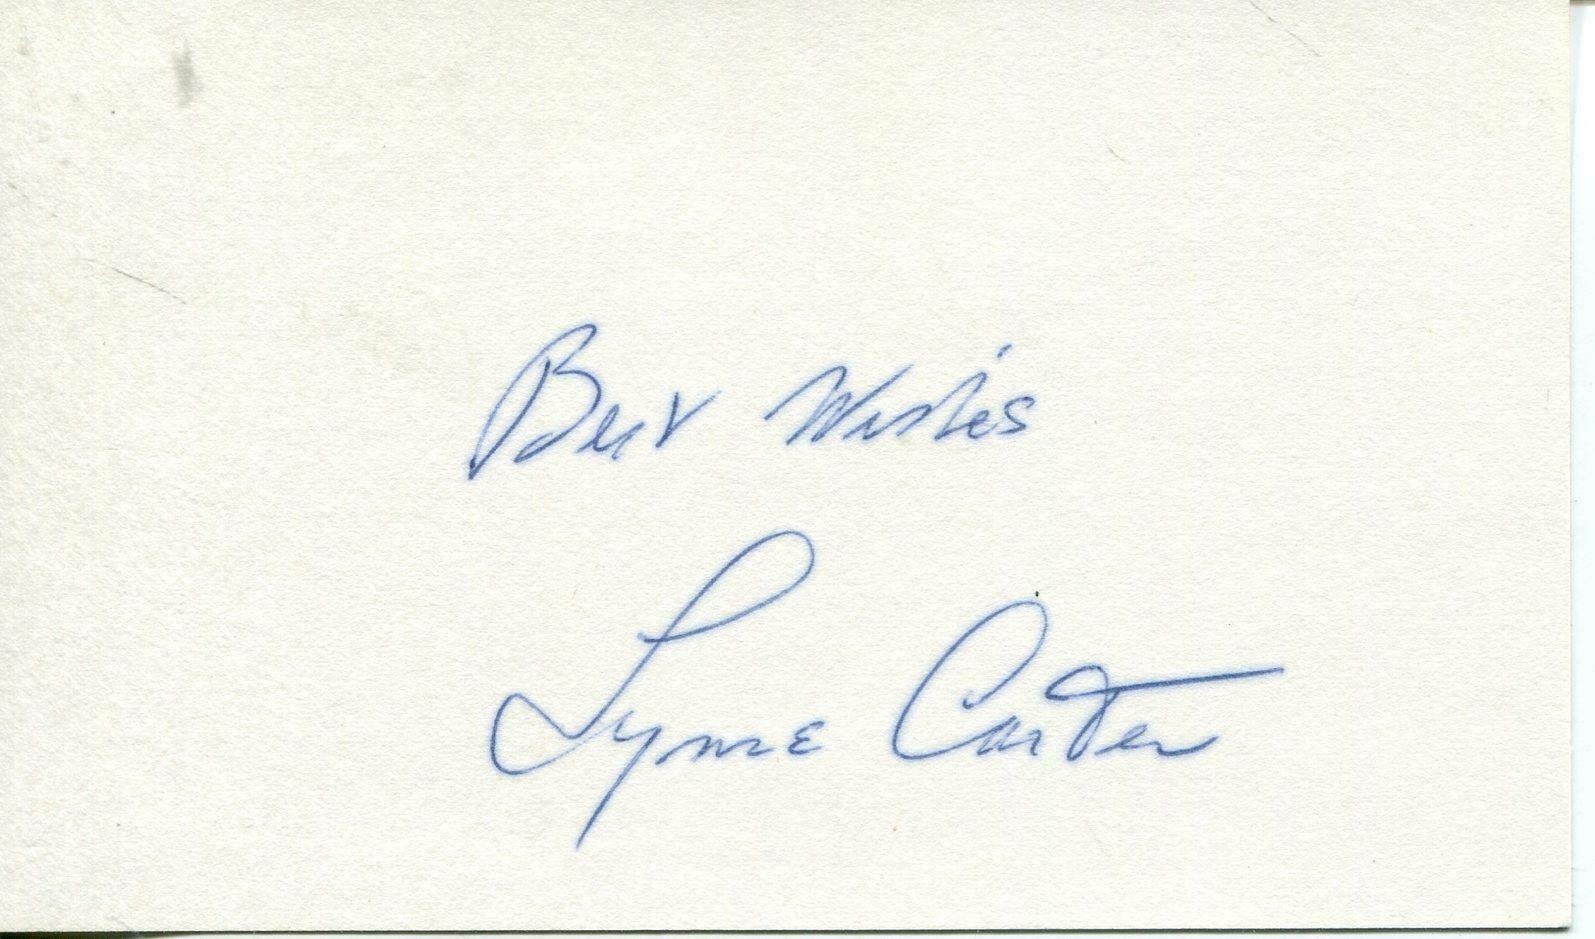 Best Wishes
Lynne Carter